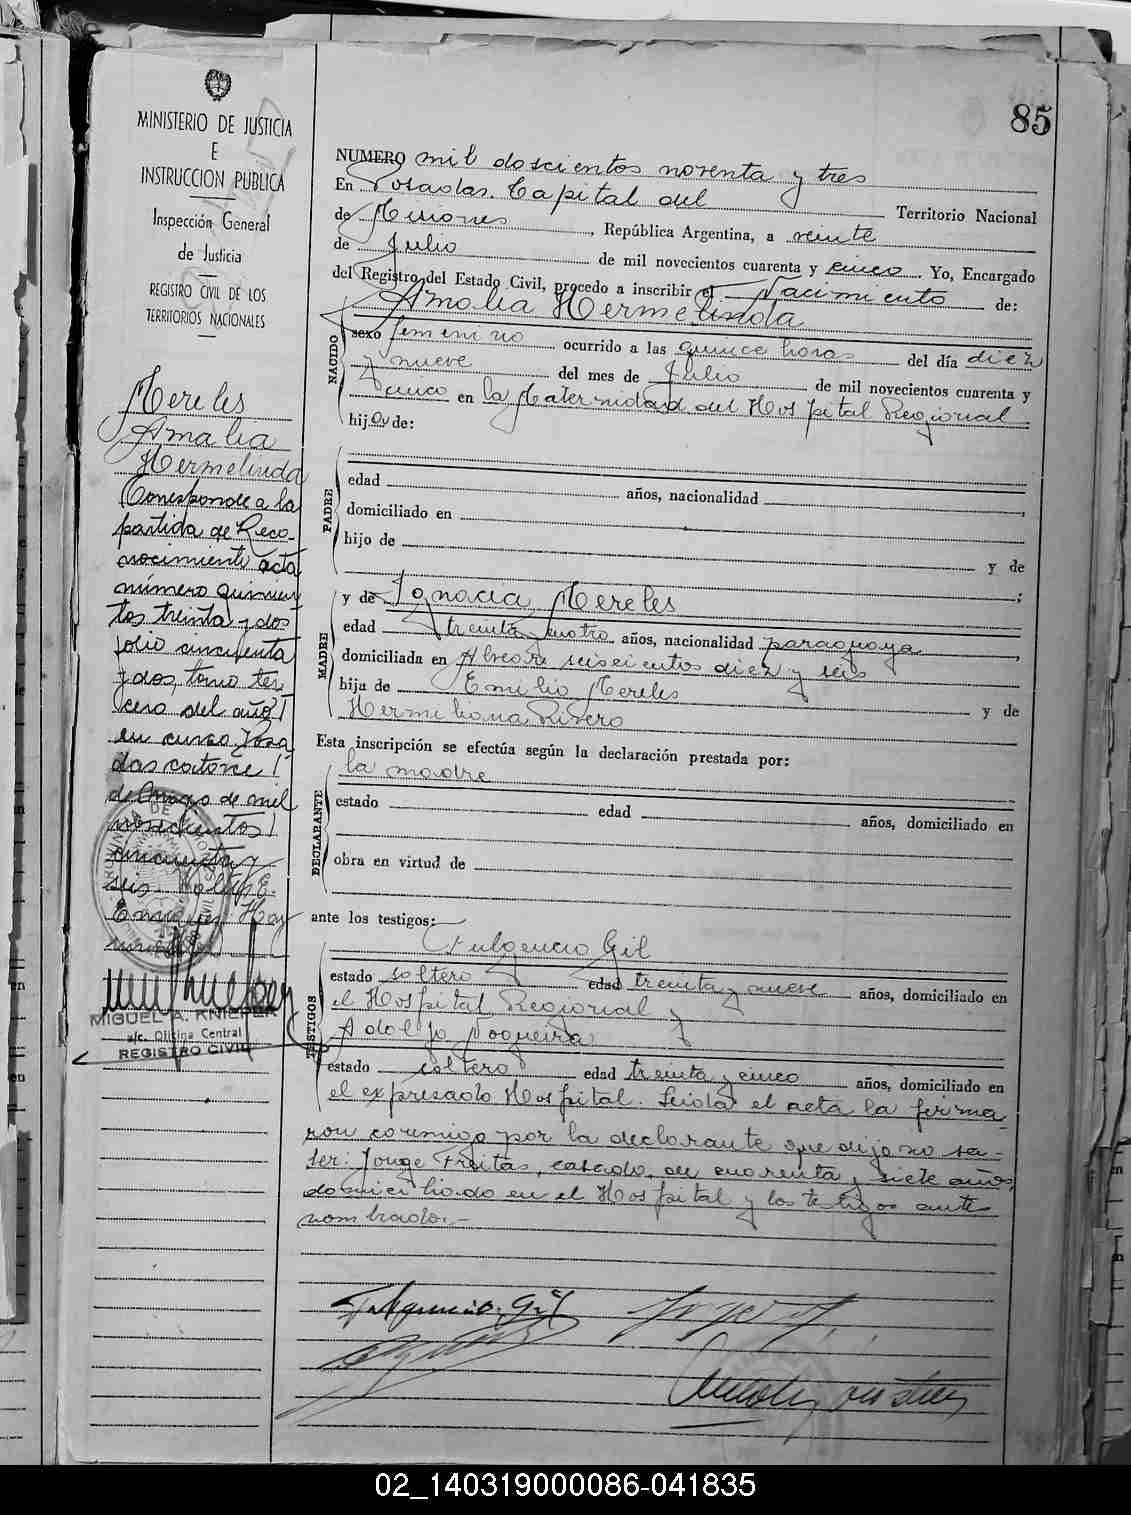 85
MINISTERIO DE JUSTICIA
E
INSTRUCCION PUBLICA
Inspección General
de Justicia
REGISTRO CIVIL DE LOS
TERRITORIOS NACIONALES
Mereles
Amalia
Hermelinda
Corresponde a la
partida de Reco-
nocimiento acta
número quinien
tos treinta y dos
folio cincuenta
y dos, tomo ter
cero del año
en curso. Posa
das catorce
de Mayo de mil
novecientos
cincuenta y
seis.
MIGUEL A. KNIEPER
a/c. Oficina Central
REGISTRO CIVIL
NUMERO mil doscientos noventa y tres
En Posadas. Capital del Territorio Nacional
de Misiones, República Argentina, a veinte
de Julio de mil novecientos cuarenta y cinco. Yo, Encargado
del Registro del Estado Civil, procedo a inscribir el Nacimiento de:
Amalia Hermelinda
NACIDO
sexo femenino ocurrido a las quince horas del día diez
y nueve del mes de Julio de mil novecientos cuarenta y
cinco en la Maternidad del Hospital Regional
hija de:
PADRE
edad años, nacionalidad
domiciliado en
hijo de y de
;
MADRE
y de Ignacia Mereles
edad treinta y cuatro años, nacionalidad paraguaya
domiciliada en Alvear seiscientos diez y seis
hija de Emilio Mereles y de
Hermiliana Rivero
Esta inscripción se efectúa según la declaración prestada por:
la madre
DECLARANTE
estado edad años, domiciliado en
obra en virtud de
ante los testigos:
Fulgencio Gil
TESTIGOS
estado soltero edad treinta y nueve años, domiciliado en
el Hospital Regional y
Adolfo Nogueira
estado soltero edad treinta y cinco años, domiciliado en
el expresado Hospital. Leida el acta la firma
ron conmigo por la declarante que dijo no sa-
ber: Jorge Freitas, casado, de cuarenta y siete años,
domiciliado en el Hospital y los testigos ante
nombrados.-
Fulgencio Gil
02_140319000086-041835